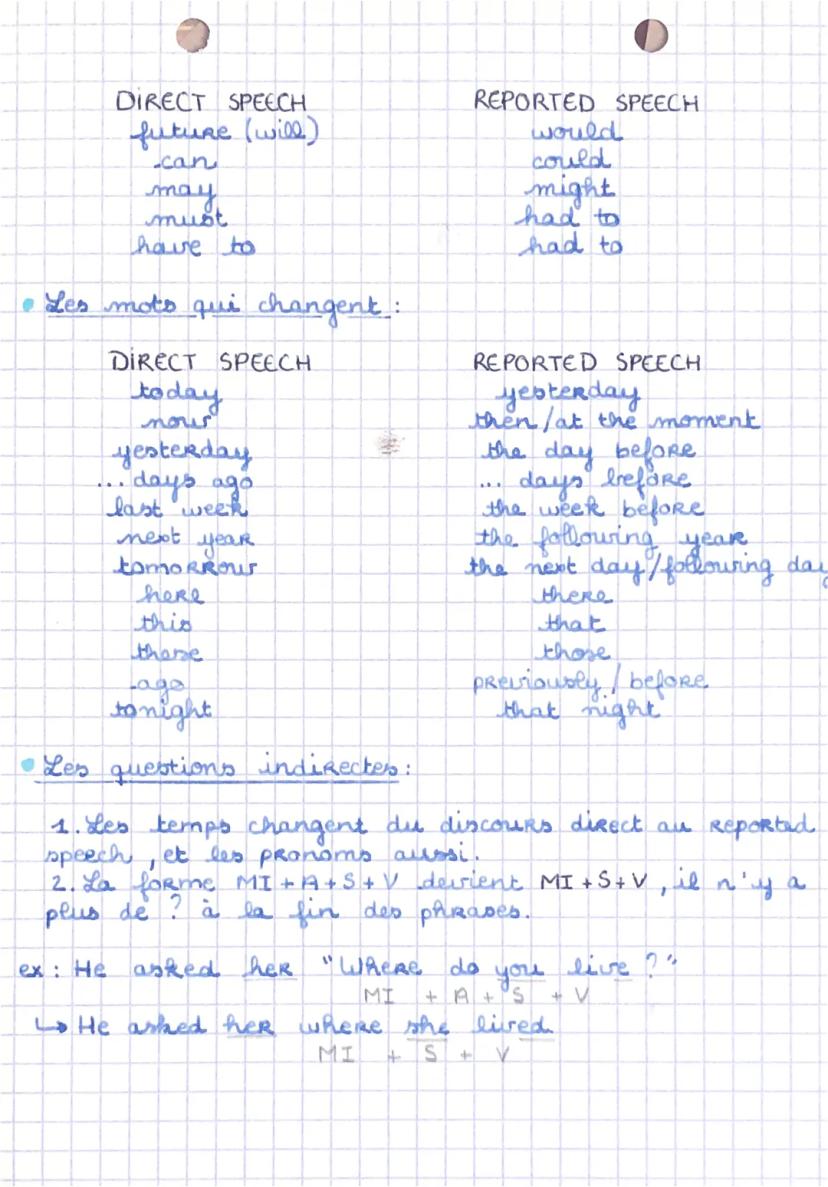 DIRECT SPEECH REPORTED SPEECH
future (will) would
can could
may might
must had to
have to had to
• Les mots qui changent :
DIRECT SPEECH REPORTED SPEECH
today yesterday
now then / at the moment
yesterday the day before
... days ago ... days before
last week the week before
next year the following year
tomorrow the next day / following day
here there
this that
these those
ago previously / before
tonight that night
• Les questions indirectes :
1. Les temps changent du discours direct au reported
speech, et les pronoms aussi.
2. La forme MI + A + S + V devient MI + S + V, il n'y a
plus de ? à la fin des phrases.
ex : He asked her "Where do you live ?"
MI + A + S + V
↳ He asked her where she lived
MI + S + V